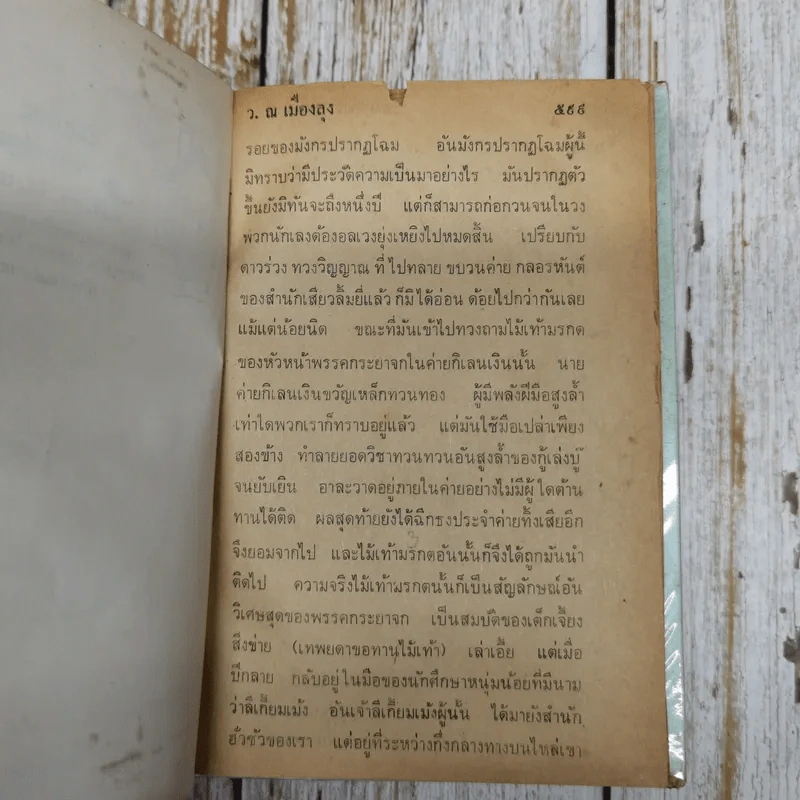 ว. ณ เมืองลุง ๕๙๙
รอยของมังกรปรากฏโฉม อันมังกรปรากฏโฉมผู้นี้
มิทราบว่ามีประวัติความเป็นมาอย่างไร มันปรากฏตัว
ขึ้นยังมิทันจะถึงหนึ่งปี แต่ก็สามารถก่อกวนจนในวง
พวกนักเลงต้องอลเวงยุ่งเหยิงไปหมดสิ้น เปรียบกับ
ดาวร่วง ทวงวิญญาณ ที่ ไปทลาย ขบวนค่าย กลอรหันต์
ของสำนักเสียวลิ้มยี่แล้ว ก็มิได้อ่อน ด้อยไปกว่ากันเลย
แม้แต่น้อยนิด ขณะที่มันเข้าไปทวงถามไม้เท้ามรกต
ของหัวหน้าพรรคกระยาจกในค่ายกิเลนเงินนั้น นาย
ค่ายกิเลนเงินขวัญเหล็กทวนทอง ผู้มีพลังฝีมือสูงล้ำ
เท่าใดพวกเราก็ทราบอยู่แล้ว แต่มันใช้มือเปล่าเพียง
สองข้าง ทำลายยอดวิชาทวนทวนอันสูงล้ำของกู้เล่งบู๊
จนยับเยิน อาละวาดอยู่ภายในค่ายอย่างไม่มีผู้ ใดต้าน
ทานได้ติด ผลสุดท้ายยังได้ฉีกธงประจำค่ายทิ้งเสียอีก
จึงยอมจากไป และไม้เท้ามรกตอันนั้นก็จึงได้ถูกมันนำ
ติดไป ความจริงไม้เท้ามรกตนั้นก็เป็นสัญลักษณ์อัน
วิเศษสุดของพรรคกระยาจก เป็นสมบัติของเต็กเจี้ยง
สิงข่าย (เทพยดาขอทานไม้เท้า) เล่าเอี้ย แต่เมื่อ
ปีกลาย กลับอยู่ในมือของนักศึกษาหนุ่มน้อยที่มีนาม
ว่าลีเกี้ยมเม้ง อันเจ้าลีเกี้ยมเม้งผู้นั้น ได้มายังสำนัก
ฮั้วซัวของเรา แต่อยู่ที่ระหว่างกึ่งกลางทางบนไหล่เขา